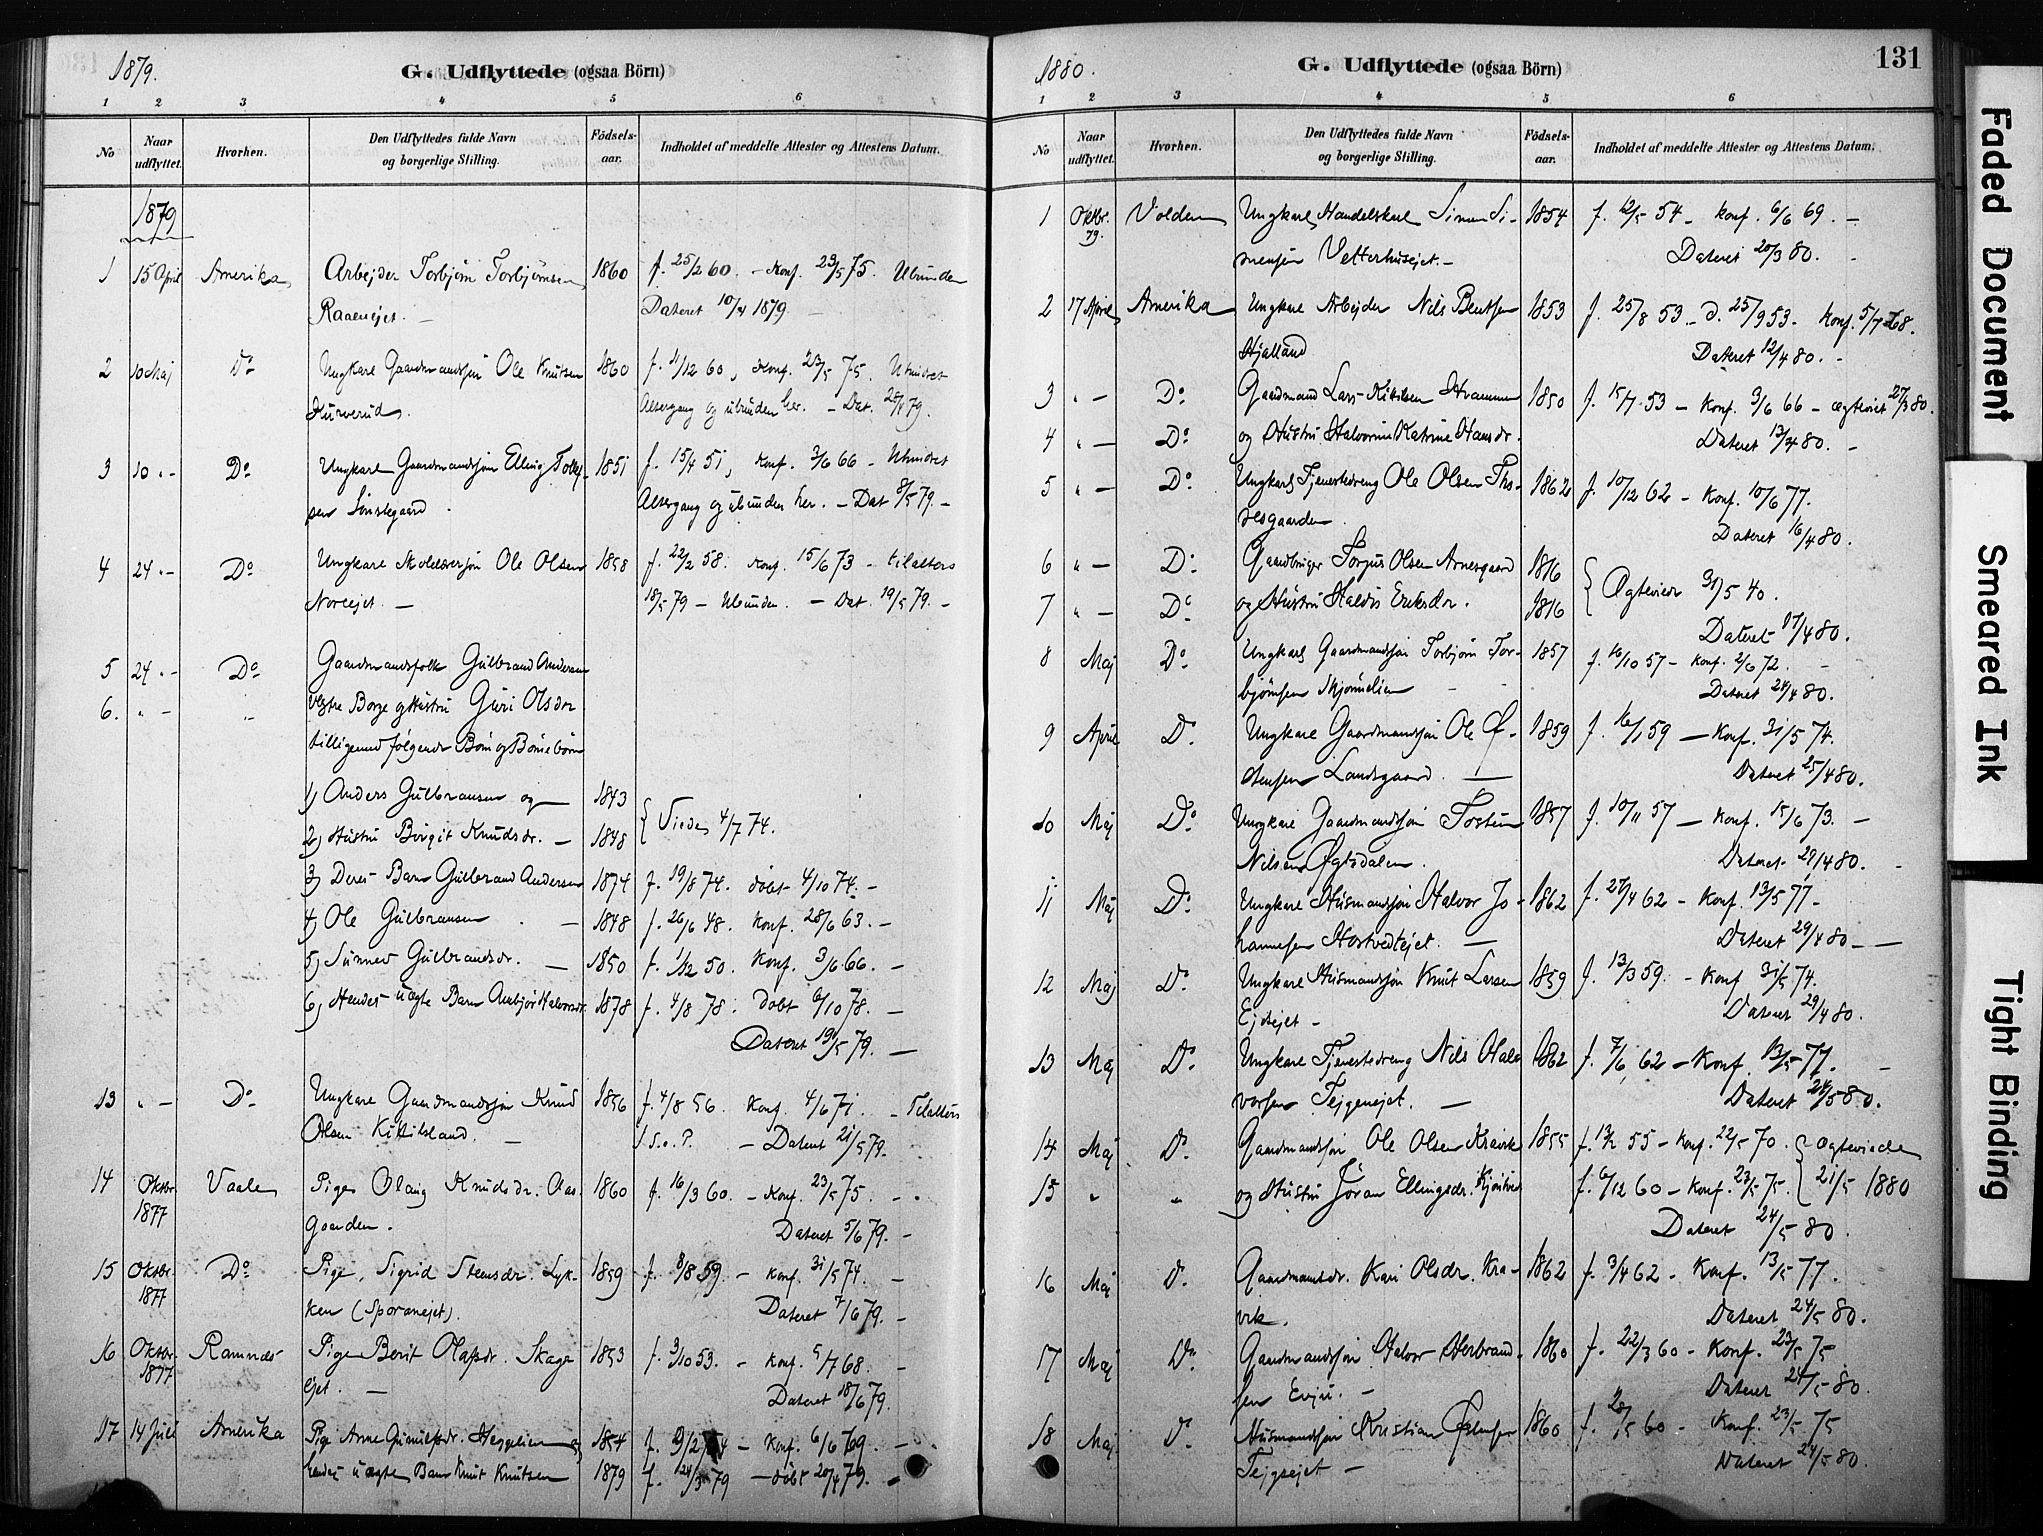 1879.
G. Udflyttede (ogsaa Börn)
1 2 3 4 5 6
No
Naar udflyttet.
Hvorhen.
Den Udflyttedes fulde Navn og borgerlige Stilling.
Födsels-aar.
Indholdet af meddelte Attester og Attestens Datum.
1879
1 15 April Amerika Arbejder Torbjörn Torbjörnsen 1860 f. 25/2 60. - Konf. 23/5 75. Ubunden
Raaenejet. - Dateret 10/4 1879. -
2 10 Maj Do Ungkarl Gaardmandssön Ole Knutsen 1860 f. 4/12 60, Konf. 23/5 75.
Altergang og ubunden her. - Dat.
3 10 " - Do Ungkarl Gaardmandssön Elling Tollef- 1851 f. 15/4 51, Konf. 3/6 66 -
sen Altergang og ubunden her. - Dat 8/5 79. -
4 24 " - Do Ungkarl Ole Olsen 1858 f. 22/2 58. Konf. 15/6 73 - til alters
18/5 79 - Ubunden. - Dat. 19/5 79. -
5 24 " - Do Gaardmandsfolk Gulbrand Andersen
6. " - " Börge og Hustru Guri Olsdr
tilligemed fölgende Börn og Börnebörn
1) Anders Gulbransen og 1843
2) Hustru Birgit Knudsdr. - 1848 Viede 4/7 74.
3) Deres Barn Gulbrand Andersen 1874 f. 19/8 74. döbt 4/10 74. -
4) Ole Gulbransen - 1848 f. 26/6 48. Konf. 28/6 63. -
5) Sünnev Gulbrandsdr. - 1850 f. 1/12 50. Konf. 3/6 66. -
6) Hendes uægte Barn Halvorsdr. 1878 f. 4/8 78. döbt 6/10 78. -
Dateret 19/5 79. -
13 " - Do Ungkarl Gaardmandssön Knud 1856 f. 4/8 56. Konf. 4/6 71. - Til alters
Olsen Kittilsland. - Dateret 21/5 79.
14 Oktbr. 1877 Vaale Pige Olaug Knudsdr. Aas- 1860 f. 16/3 60. - Konf. 23/5 75. -
gaarden. Dateret 5/6 79. -
15 Oktbr. 1877 Do Pige, Sigrid Steensdr. Lyk- 1859 f. 8/8 59 - Konf. 31/5 74. -
ken (Sporanejet). Dateret 7/6 79. -
16 Oktbr. 1877 Ramnes Pige Berit Olafsdr. 1853 f. 3/10 53. - Konf. 5/7 68. -
ejet. - Dateret 18/6 79.
17 14 Juli Amerika Pige Anne Gunulfsdr. Heggelien og 1854 f. - Konf. 6/6 69. -
hendes uægte Barn Knut Knutsen 1879 f. - döbt 20/4 79. -
1880.
G. Udflyttede (ogsaa Börn)
131
1 2 3 4 5 6
No
Naar udflyttet.
Hvorhen.
Den Udflyttedes fulde Navn og borgerlige Stilling.
Födsels-aar.
Indholdet af meddelte Attester og Attestens Datum.
1 Oktbr. 79. Volden Ungkarl, Handelskarl Simen Si- 1854 f. 12/5 54 - Konf. 6/6 69. -
mensen Vetterhusejet. - Dateret 20/3 80. -
2 17 April Amerika Ungkarl Arbejder Nils Bentsen 1853 f. 25/8 53 - d. 25/9 53. Konf. 5/7 68.
Hjalland Dateret 12/4 80. -
3 " - Do Gaardmand Lars Kittilsen 1850 f. 15/7 53 - Konf. 3/6 66 - ægteviet 27/3 80.
4 " - Do og Hustru Halvorine Katrine Hansdr. Dateret 13/4 80. -
5 " - Do Ungkarl, Tjenestedreng Ole Olsen 1862 f. 10/12 62 - Konf. 10/6 77.
Dateret 16/4 80.
6 " - Do Gaardbruger Torjus Olsen Arnesgaard 1816 Ægteviede 31/5 40.
7 " - Do og Hustru Haldis Eriksdr. 1816
Dateret 17/4 80.
8 Maj Do Ungkarl Gaardmandssön Torbjörn Tor- 1857 f. 16/10 57 - Konf. 2/6 72. -
björnsen Skjönnelien - Dateret 24/4 80.
9 April Do Ungkarl Gaardmandssön Ole Ø- 1859 f. 16/1 59 - Konf. 31/5 74.
stensen Landsgaard. - Dateret 25/4 80.
10 Maj Do Ungkarl Gaardmandssön Tosten 1857 f. 10/11 57 - Konf. 15/6 73. -
Nilsen Øgtsdalen. Dateret 29/4 80. -
11 Maj Do Ungkarl Husmandssön Halvor Jo- 1862 f. 27/4 62 - Konf. 13/5 77 -
hannesen Hostvedtejet. - Dateret 29/4 80 -
12 Maj Do Ungkarl Husmandssön Knut Larsen 1859 f. 13/3 59. - Konf 31/5 74.
Ejdsejet - Dateret 29/4 80.
13 Maj Do Ungkarl Tjenestedreng Nils Hal- 1862 f. 7/6 62 - Konf. 13/5 77. -
vorsen Tejgenejet. - Dateret
14 Maj Do Gaardmandssön Ole Olsen Kravik 1855 f. 13/2 55 - Konf. 22/5 70. ægteviede
15 " " og Hustru Jöran Ellingsdr. f. 6/12 60 - Konf. 23/5 75. 21/5 1880
Dateret 24/5 80.
16 Maj Do Gaardmandsdr. Kari Olsdr. Kra- 1862 f. 3/4 62 - Konf. 13/5 77.
vik. Dateret 24/5 80.
17 Maj Do Gaardmandssön Halvor Herbrand- 1860 f. 22/3 60 - Konf. 23/5 75
sen Evju. - Dateret 24/5 80.
18 Maj Do Husmandssön Kristian Østensen 1860 f. 28/5 60 - Konf. 23/5 75
Tejgsejet - Dateret 24/5 80.
Faded Document
Smeared Ink
Tight Binding